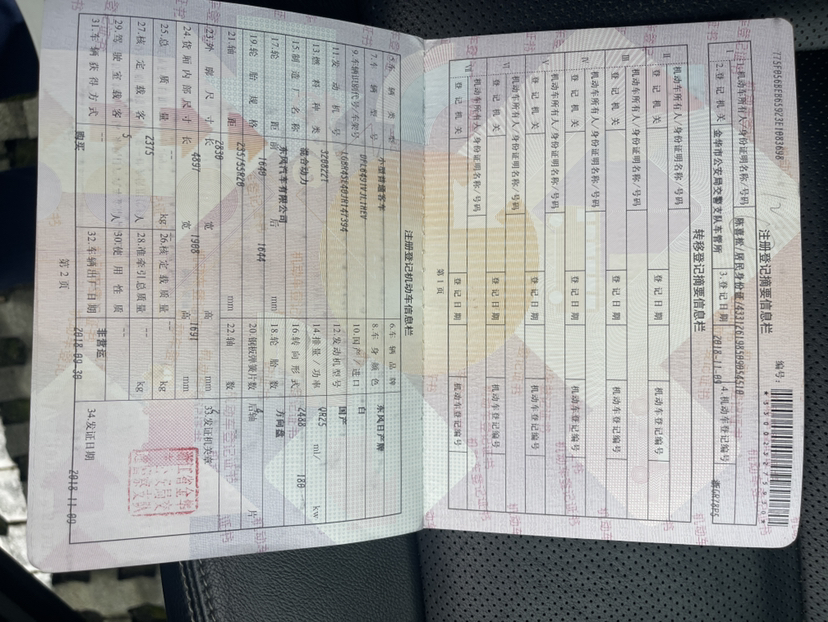 注册登记摘要信息栏
编号:
I
1.机动车所有人/身份证明名称/号码
2.登记机关 金华市公安局交警支队车管所 3.登记日期 2018-11-09 4.机动车登记编号
转移登记摘要信息栏
II 机动车所有人/身份证明名称/号码
登记机关 登记日期 机动车登记编号
III 机动车所有人/身份证明名称/号码
登记机关 登记日期 机动车登记编号
IV 机动车所有人/身份证明名称/号码
登记机关 登记日期 机动车登记编号
V 机动车所有人/身份证明名称/号码
登记机关 登记日期 机动车登记编号
VI 机动车所有人/身份证明名称/号码
登记机关 登记日期 机动车登记编号
VII 机动车所有人/身份证明名称/号码
登记机关 登记日期 机动车登记编号
第1页
注册登记机动车信息栏
5.车辆类型 小型普通客车 6.车辆品牌 东风日产牌
7.车辆型号 8.车身颜色 白
9.车辆识别代号/车架号 10.国产/进口 国产
11.发动机号 12.发动机型号 QR25
13.燃料种类 混合动力 14.排量/功率 2488 ml/ 180 kw
15.制造厂名称 东风汽车有限公司 16.转向形式 方向盘
17.轮距 前 1640 后 1644 mm 18.轮胎数 4
19.轮胎规格 235/55R20 20.钢板弹簧片数 后轴 片
21.轴距 2830 mm 22.轴数
23.外廓尺寸 长 4897 宽 1908 高 1691 mm 33.发证机关章
24.货厢内部尺寸 长 宽 高 mm
25.总质量 2375 kg 26.核定载质量 -- kg
27.核定载客 5 人 28.准牵引总质量 -- kg
29.驾驶室载客 -- 人 30.使用性质 非营运
31.车辆获得方式 购买 32.车辆出厂日期 2018-09-30 34.发证日期 2018-11-09
第2页